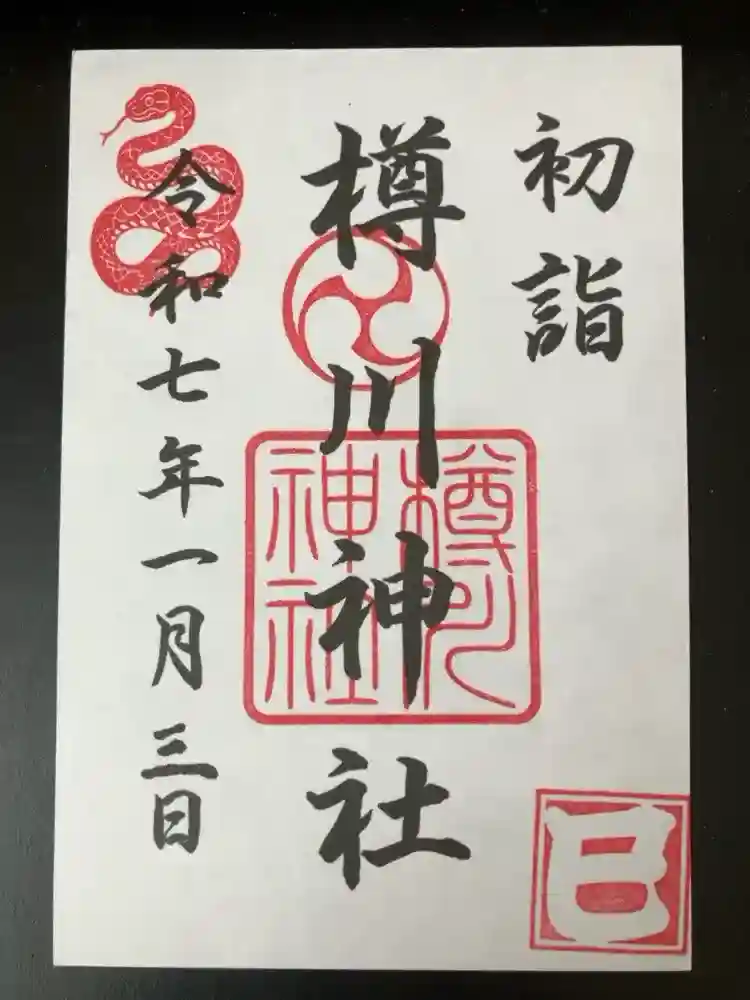 初詣
樽川神社
樽川
神社
令和七年一月三日
巳